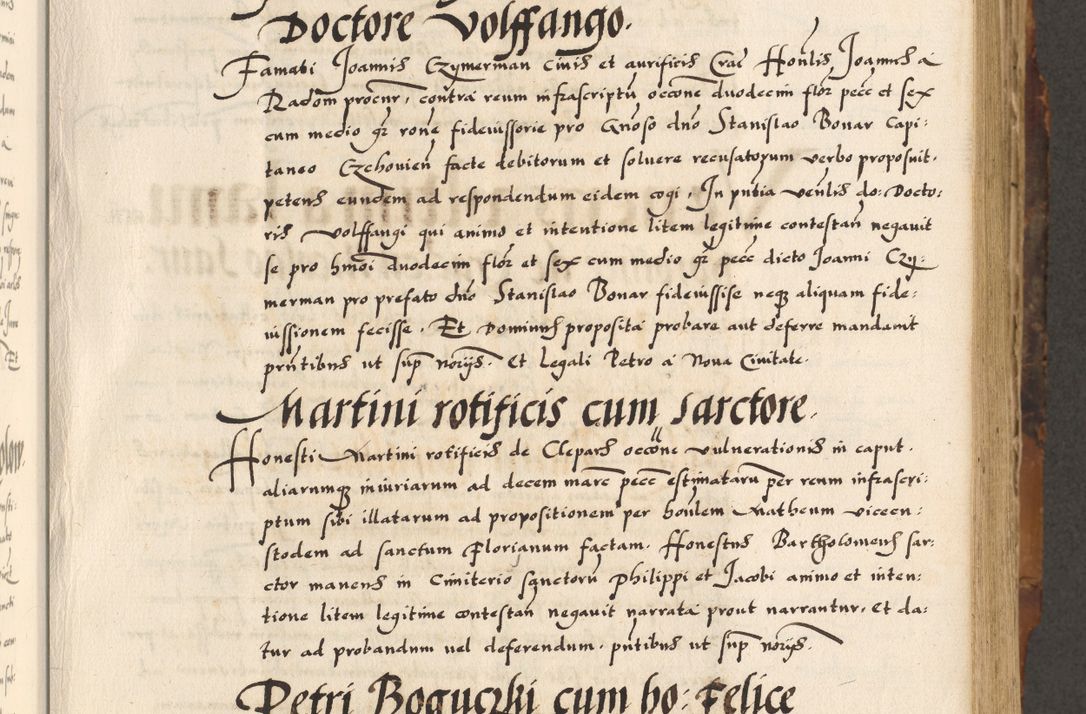 Doctore Volffango.
Famati Joannis Czymerman civis et aurificis Crac Honlis Joannes a
Radom procur, contra reum infrascriptu occone duodecim flor pecc et sex
cum medio gr rone fideiussorie pro Gnoso dno Stanislao Bonar Capi:
taneo Czchovien facte debitorum et solvere recusatorum verbo proposuit.
petens eundem ad respondendum eidem cogi. In pntia venlis do: Docto:
ris Volffangi qui animo et intentione litem legitime contestan negavit
se pro hmoi duodecim flor et sex cum medio gr pecc dicto Joanni Czy:
merman pro prefato dno Stanislao Bonar fideiussisse neq aliquam fide:
iussionem fecisse. Et Dominus proposita probare aut deferre mandavit
prntibus ut sup noriis. Et legali Petro a Nova Civitate.
Martini rotificis cum sarctore.
Honesti Martini rotificis de Clepars occone vulnerationis in caput
aliarumq iniuriarum ad decem marc pecc estimataru per reum infrascri:
ptum sibi illatarum ad propositionem per honlem Matheum vicecu:
stodem ad sanctum Florianum factam. Honestus Bartholomeus sar:
ctor manens in Cimiterio sanctoru Philippi et Jacobi animo et inten:
tione litem legitime contestan negavit narrata prout narrantur, Et da:
tur ad probandum vel deferendum. pntibus ut sup noriis.
Petri Boguczki cum ho: Felice